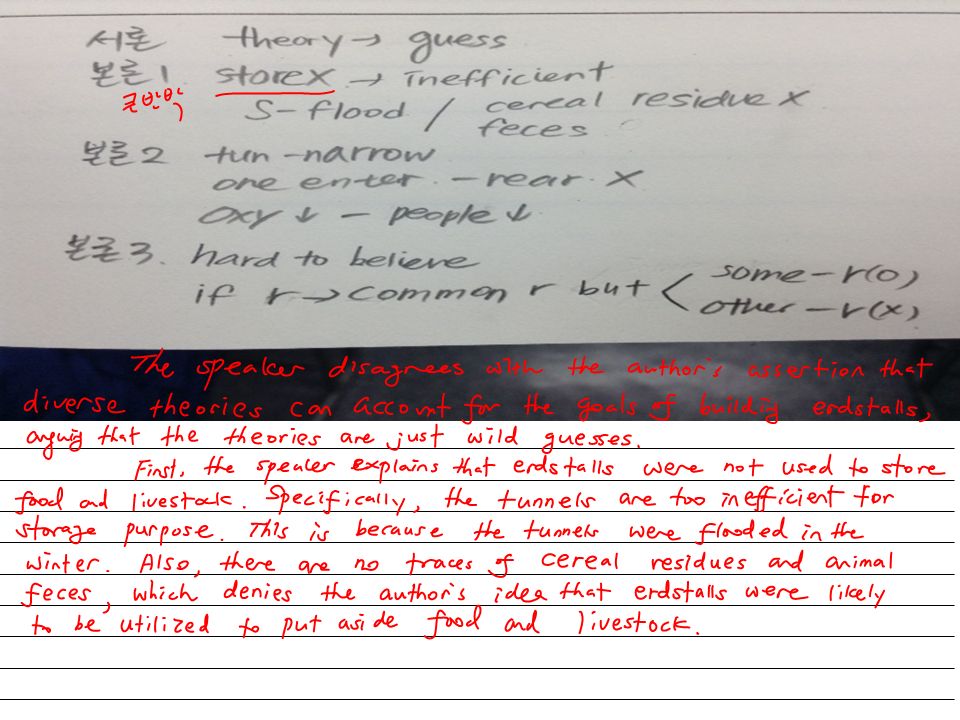 서론 theory → guess
본론1 store x → inefficient
큰반박 S-flood / cereal residue x
feces
본론2 tun-narrow
one enter. - rear. X
oxy ↓ - people ↓
본론3. hard to believe
if r → common r but < some - r(o)
other - r(x)
The speaker disagrees with the author's assertion that
diverse theories can account for the goals of building erdstalls,
arguing that the theories are just wild guesses.
First, the speaker explains that erdstalls were not used to store
food and livestock. Specifically, the tunnels are too inefficient for
storage purpose. This is because the tunnels were flooded in the
winter. Also, there are no traces of cereal residues and animal
feces, which denies the author's idea that erdstalls were likely
to be utilized to put aside food and livestock.